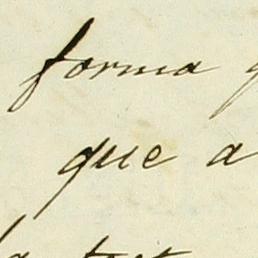 forma
que a